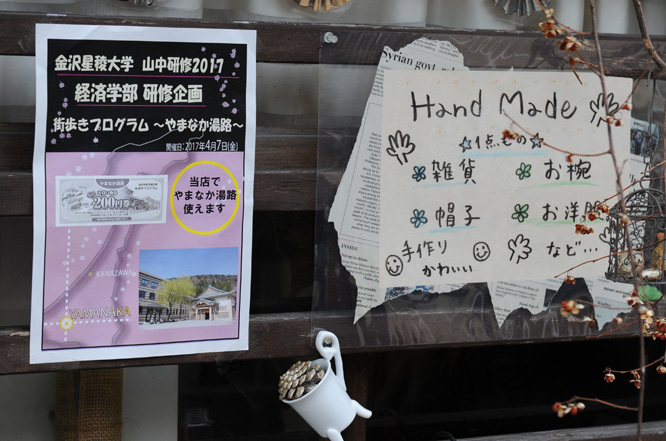 金沢星稜大学 山中研修2017
経済学部 研修企画
街歩きプログラム ～やまなか湯路～
開催日:2017年4月7日(金)
当店で
やまなか湯路
使えます
200円券
KANAZAWA
YAMANAKA
Syrian govt
Hand Made
☆1点もの☆
雑貨
お椀
帽子
お洋服
手作り
かわいい
など…
INSIDE